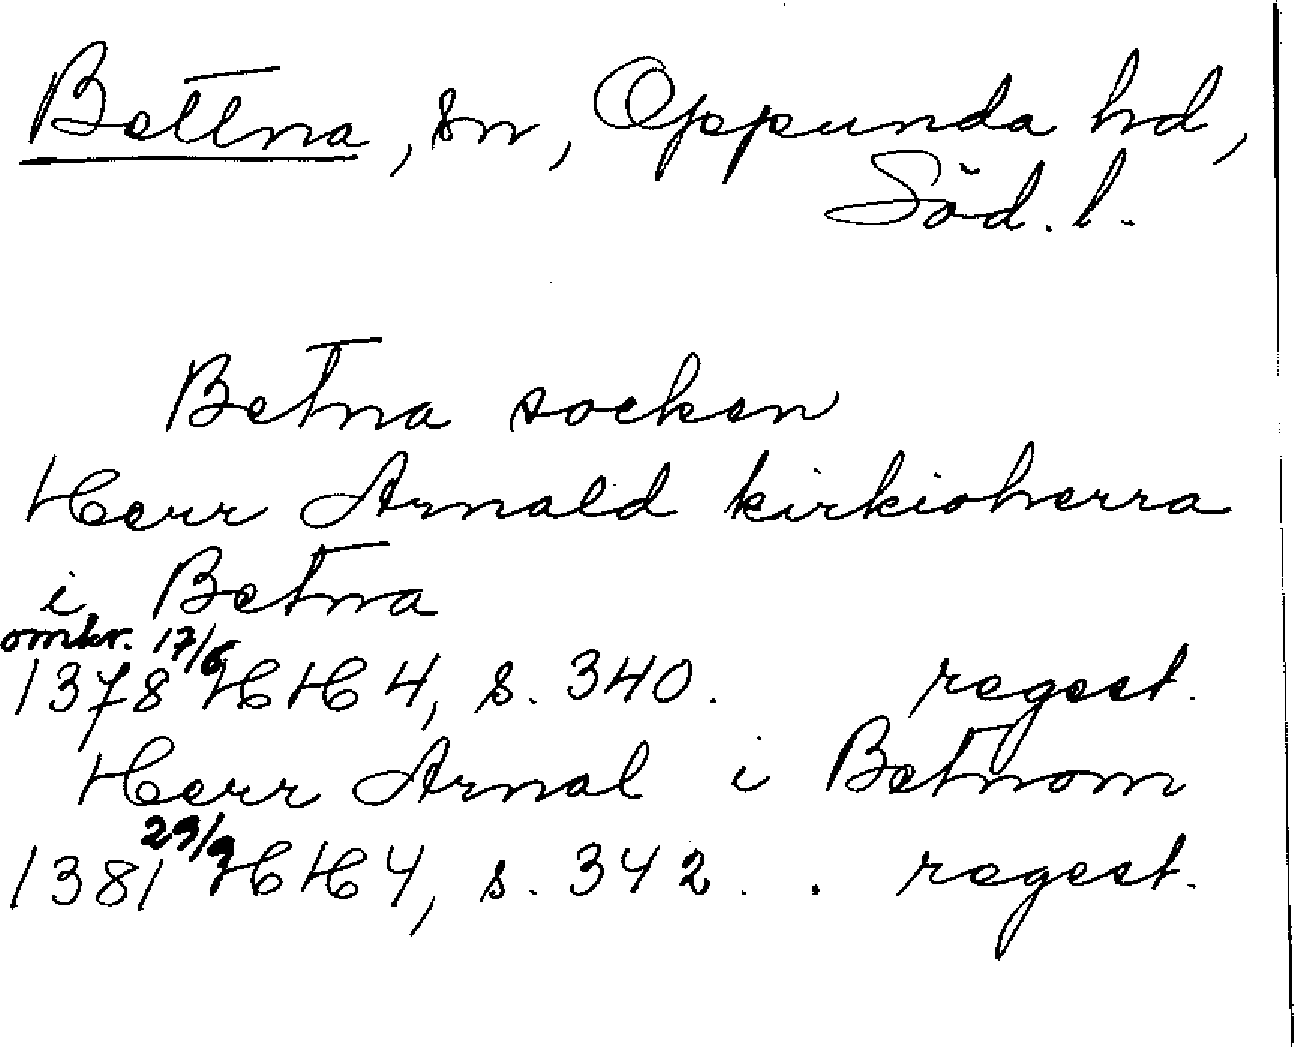 Bettna, sn, Oppunda hd,
Söd. l.
Betna socken
Herr Arnald kirkioherra
i Betna
omkr. 17/6
1378 HH 4, s. 340. regest.
Herr Arnal i Betnom
29/9
1381 HH 4, s. 342. . regest.